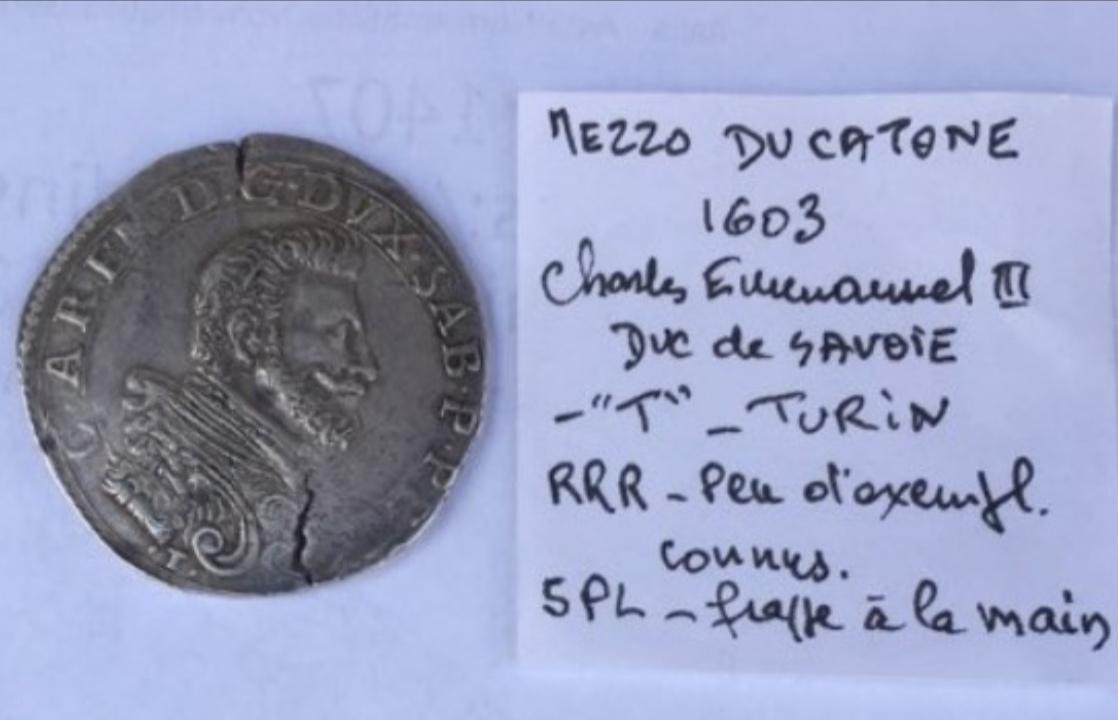 CAR EM D.G.DVX.SAB.P.P.
.T.
1407
MEZZO DUCATONE
1603
Charles Emmanuel III
DUC de SAVOIE
-"T" - TURIN
RRR - Peu d'exempl.
connus.
SPL - frappe à la main